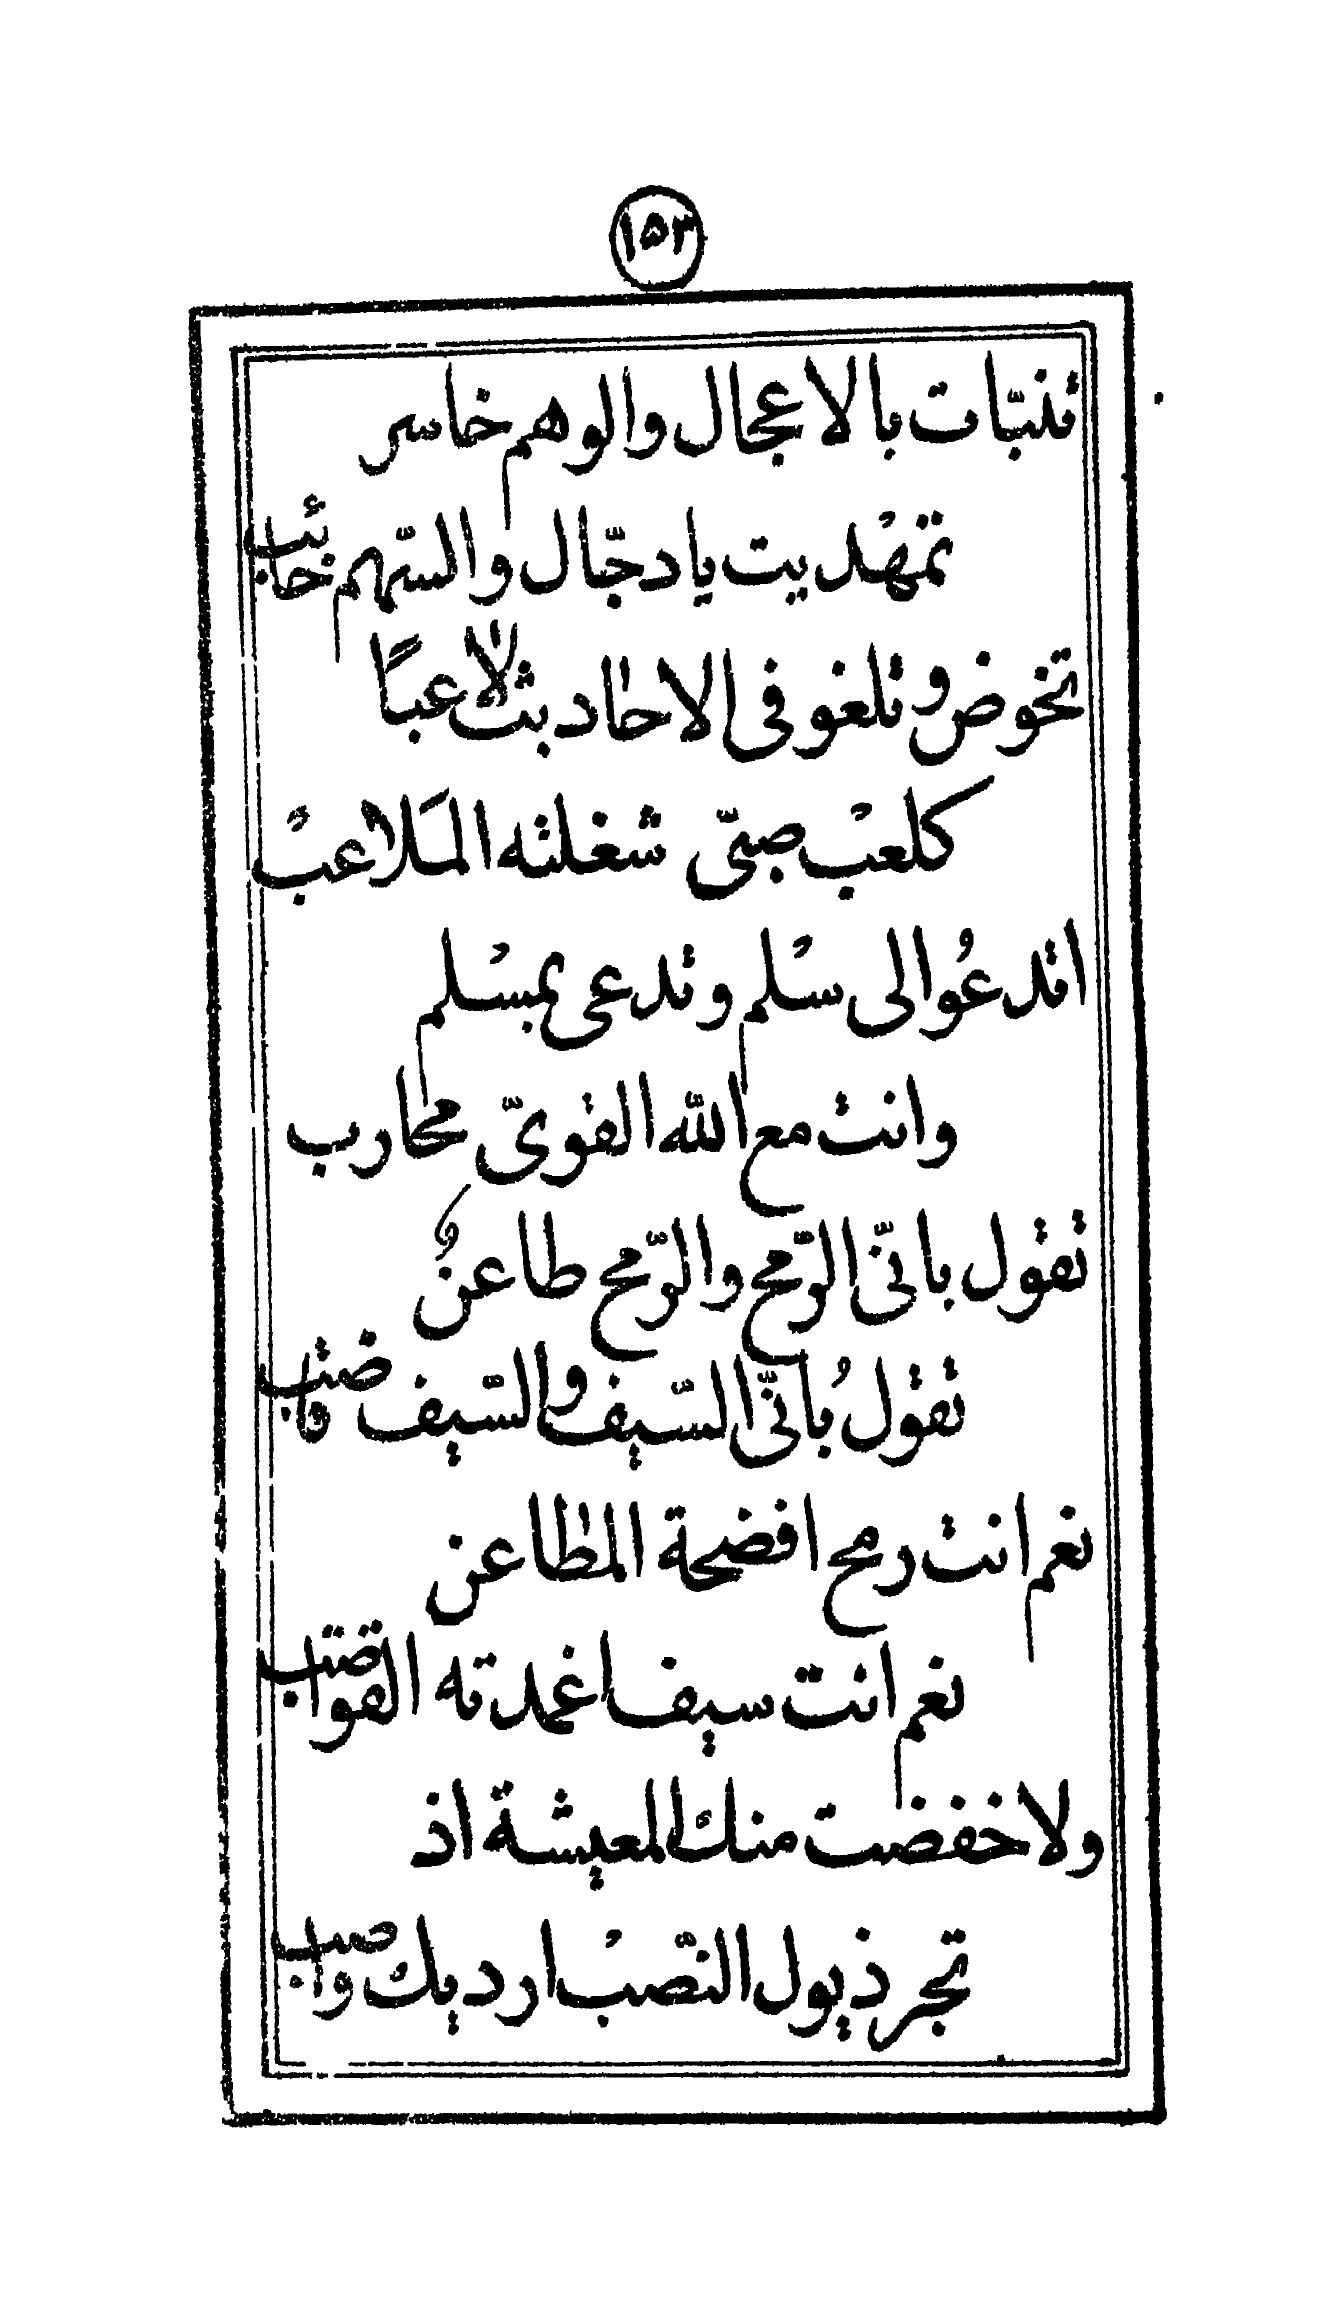 ١٥٣
تنبّات بالاعجال والوهم خاسر
تمهْديت يا دجّال والسّهم خائب
تخوض و تلغو في الاحاديث لاعبًا
كلعْب صبيّ شغلته المَلاعبْ
اتدعُو الى سلْم وتدعى بمسْلم
وانت مع الله القويّ محارب
تقول بانّي الرّمح والرّمح طاعنُ
تقولُ بانّي السّيف والسّيف قاضب
نعم انت رمح افضحة المطاعن
نعم انت سيف اغمدته القواضب
ولا خفضت منك المعيشة اذ
تجر ذيول النّصبْ ارديك واصب